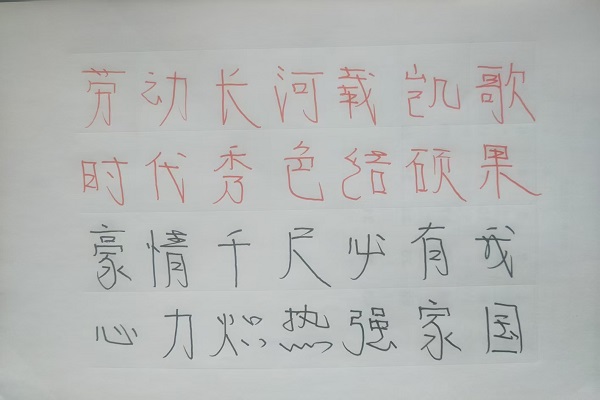 劳动长河载凯歌
时代秀色结硕果
豪情千尺必有我
心力炽热强家国